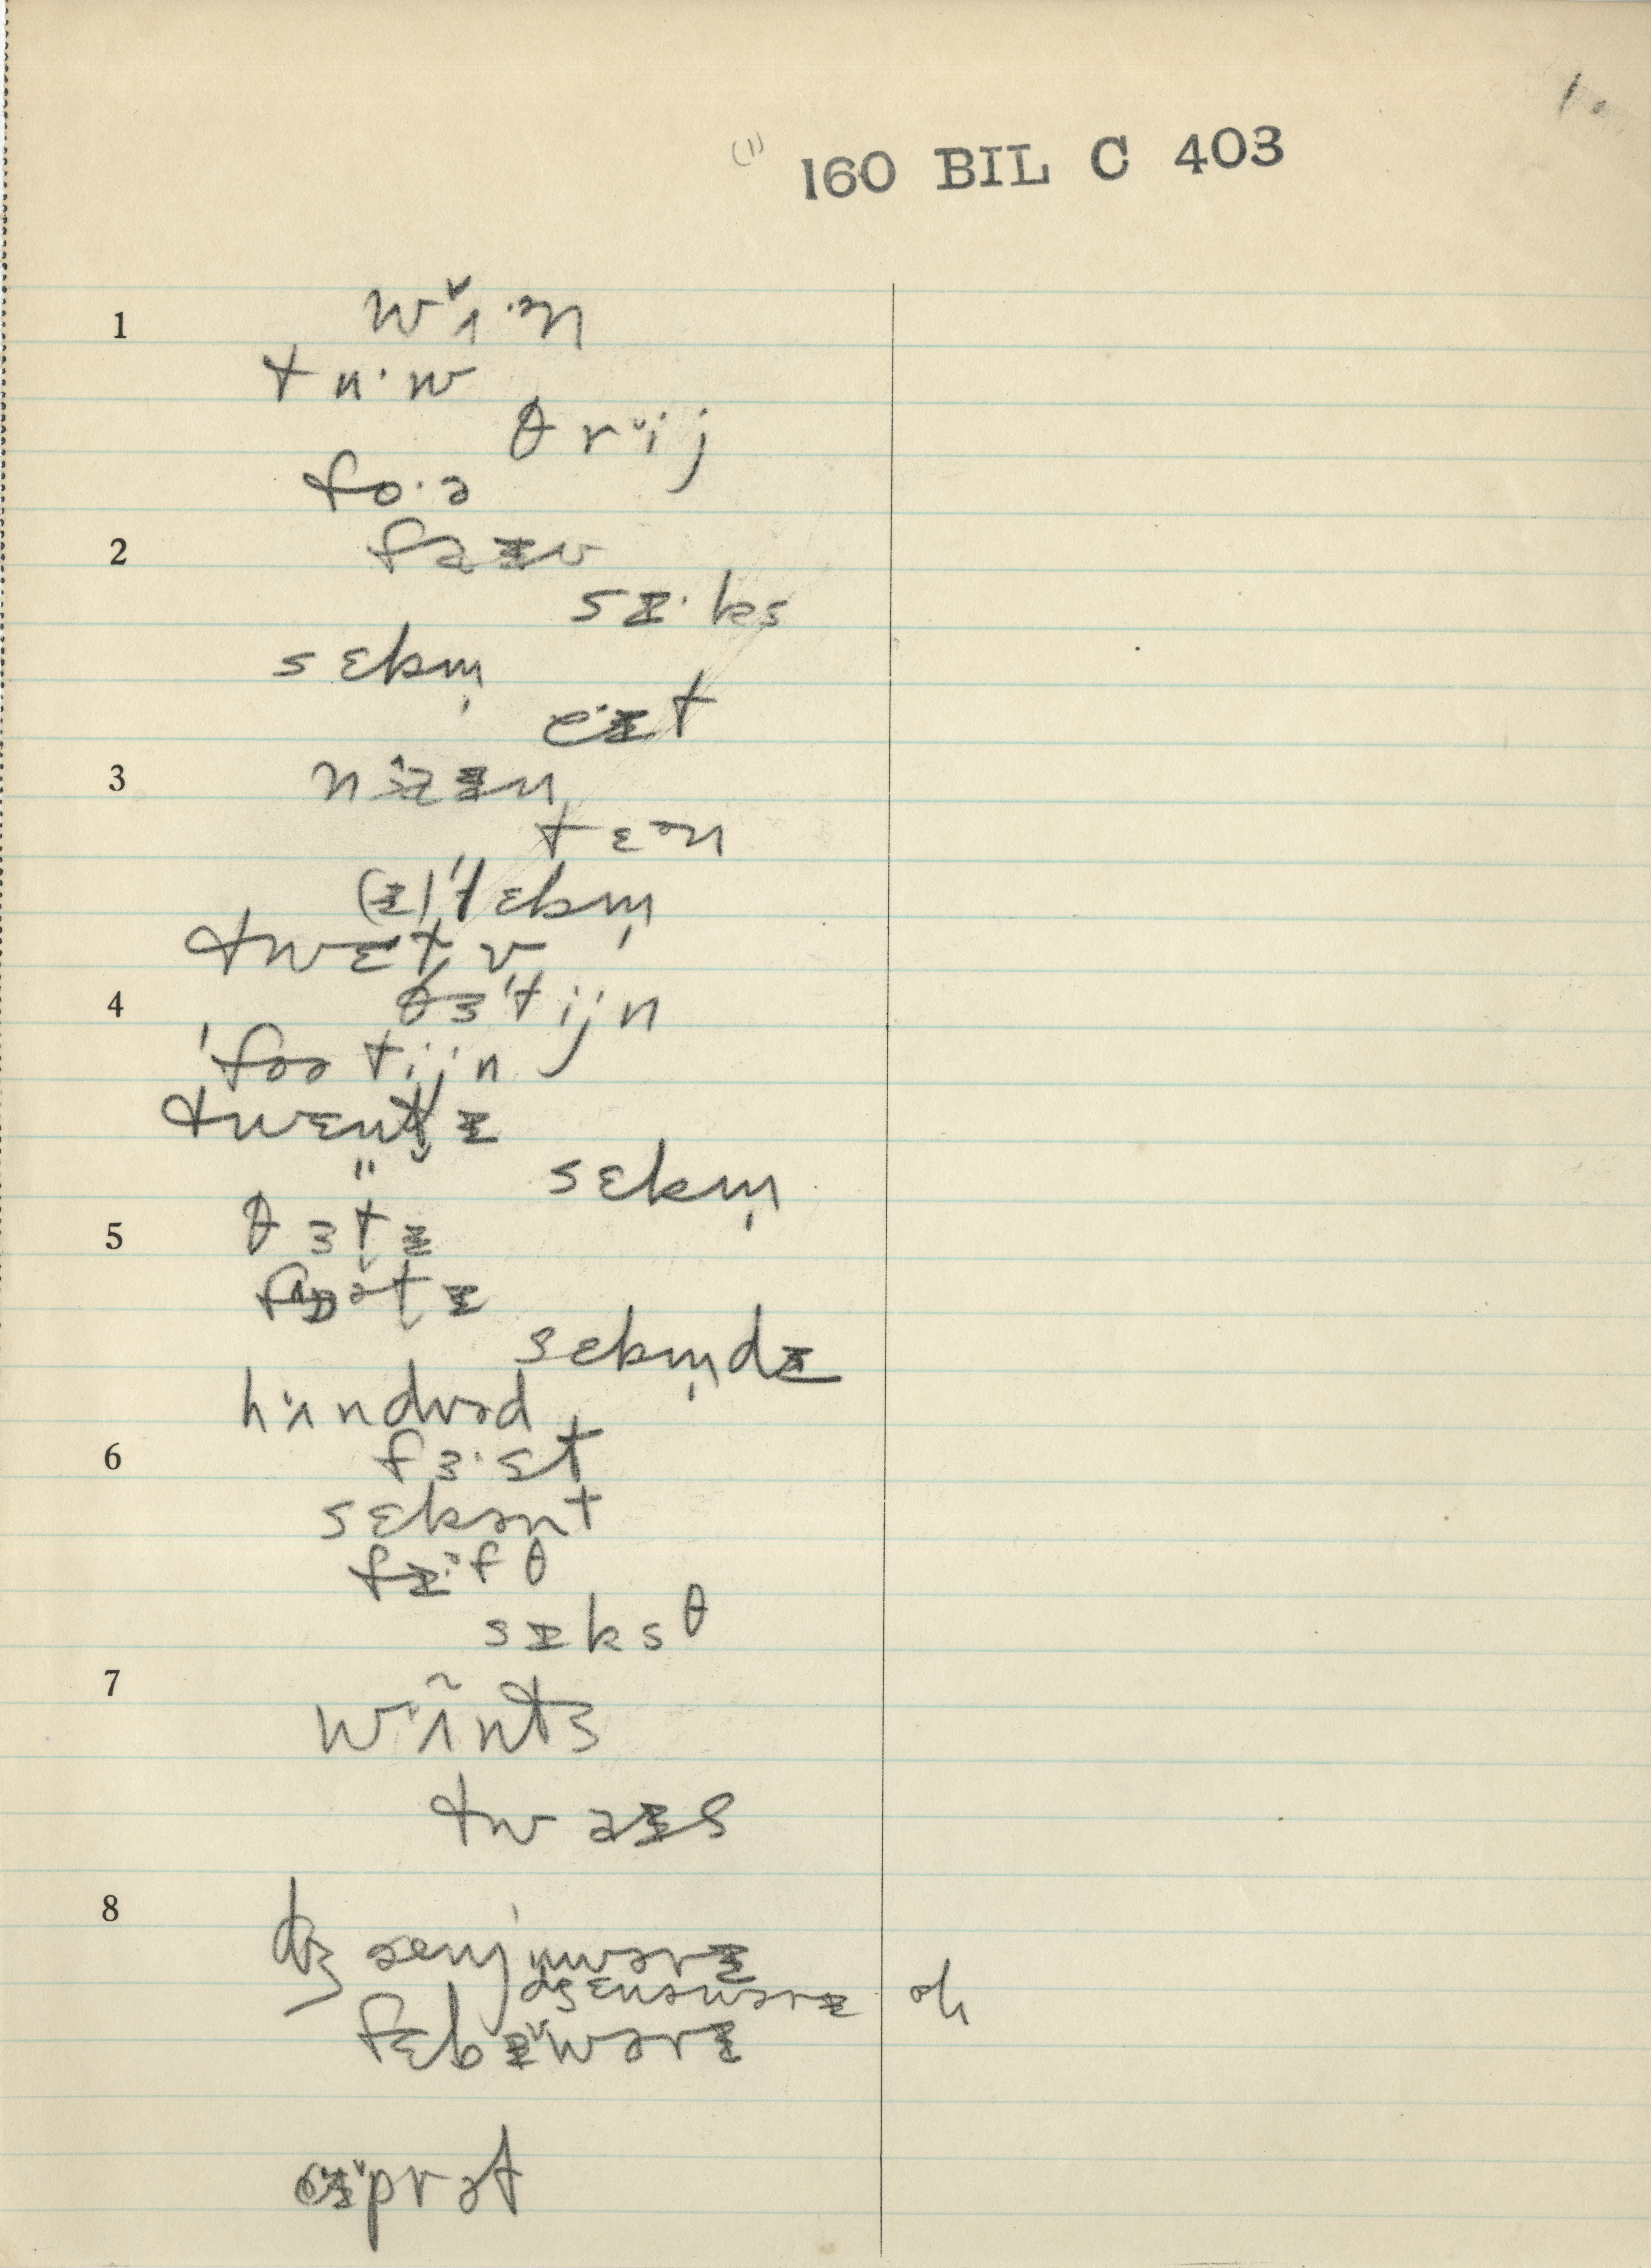 1.
(1) 160 BIL C 403
1 wˇʌ·ən
tu·w
θrˇij
fo·ə
2 faɪv
sɪ·ks
sɛbm̩
e·ɪt
3 naɪn
tɛən
(ɪ)ˈlɛbm̩
twɛlv
4 θɜˈtijn
ˈfoətijn
twɛnt̬ɪ
" sɛbm̩
5 θɜt̬ɪ
fɒət̬ɪ
sɛbm̩dɪ
hʌndrəd
6 fɜ·st
sɛkənt
fɪ·fθ
sɪksθ
7 wʌ̃nts
twaɪs
8 dʒænjuwərɪ
dʒɛnəwərɪ | ok
fɛbɪˇwərɪ
eɪˇprət